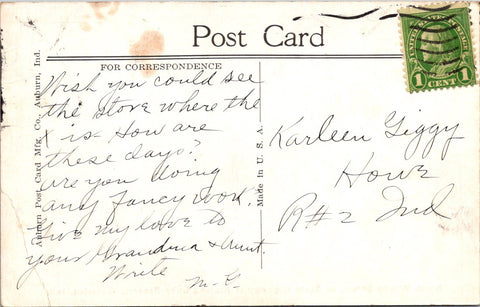 Post Card
FOR CORRESPONDENCE
UNITED STATES POSTAGE
1 CENT 1
Auburn Post Card Mfg. Co., Auburn, Ind.
Wish you could see
the store where the
X is. How are
these days?
are you doing
any fancy work.
Give my love to
your Grandma & Aunt.
Write
M-G.
Made in U.S.A.
Karleen Giggy
Howe
R#2 Ind